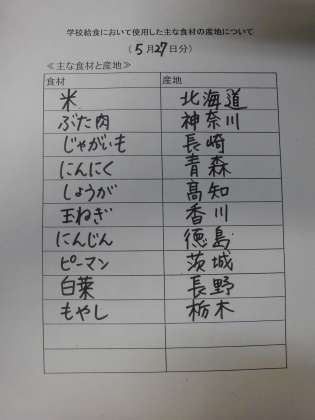 学校給食において使用した主な食材の産地について
(5月27日分)
≪主な食材と産地≫
食材 産地
米 北海道
ぶた肉 神奈川
じゃがいも 長崎
にんにく 青森
しょうが 高知
玉ねぎ 香川
にんじん 徳島
ピーマン 茨城
白菜 長野
もやし 栃木